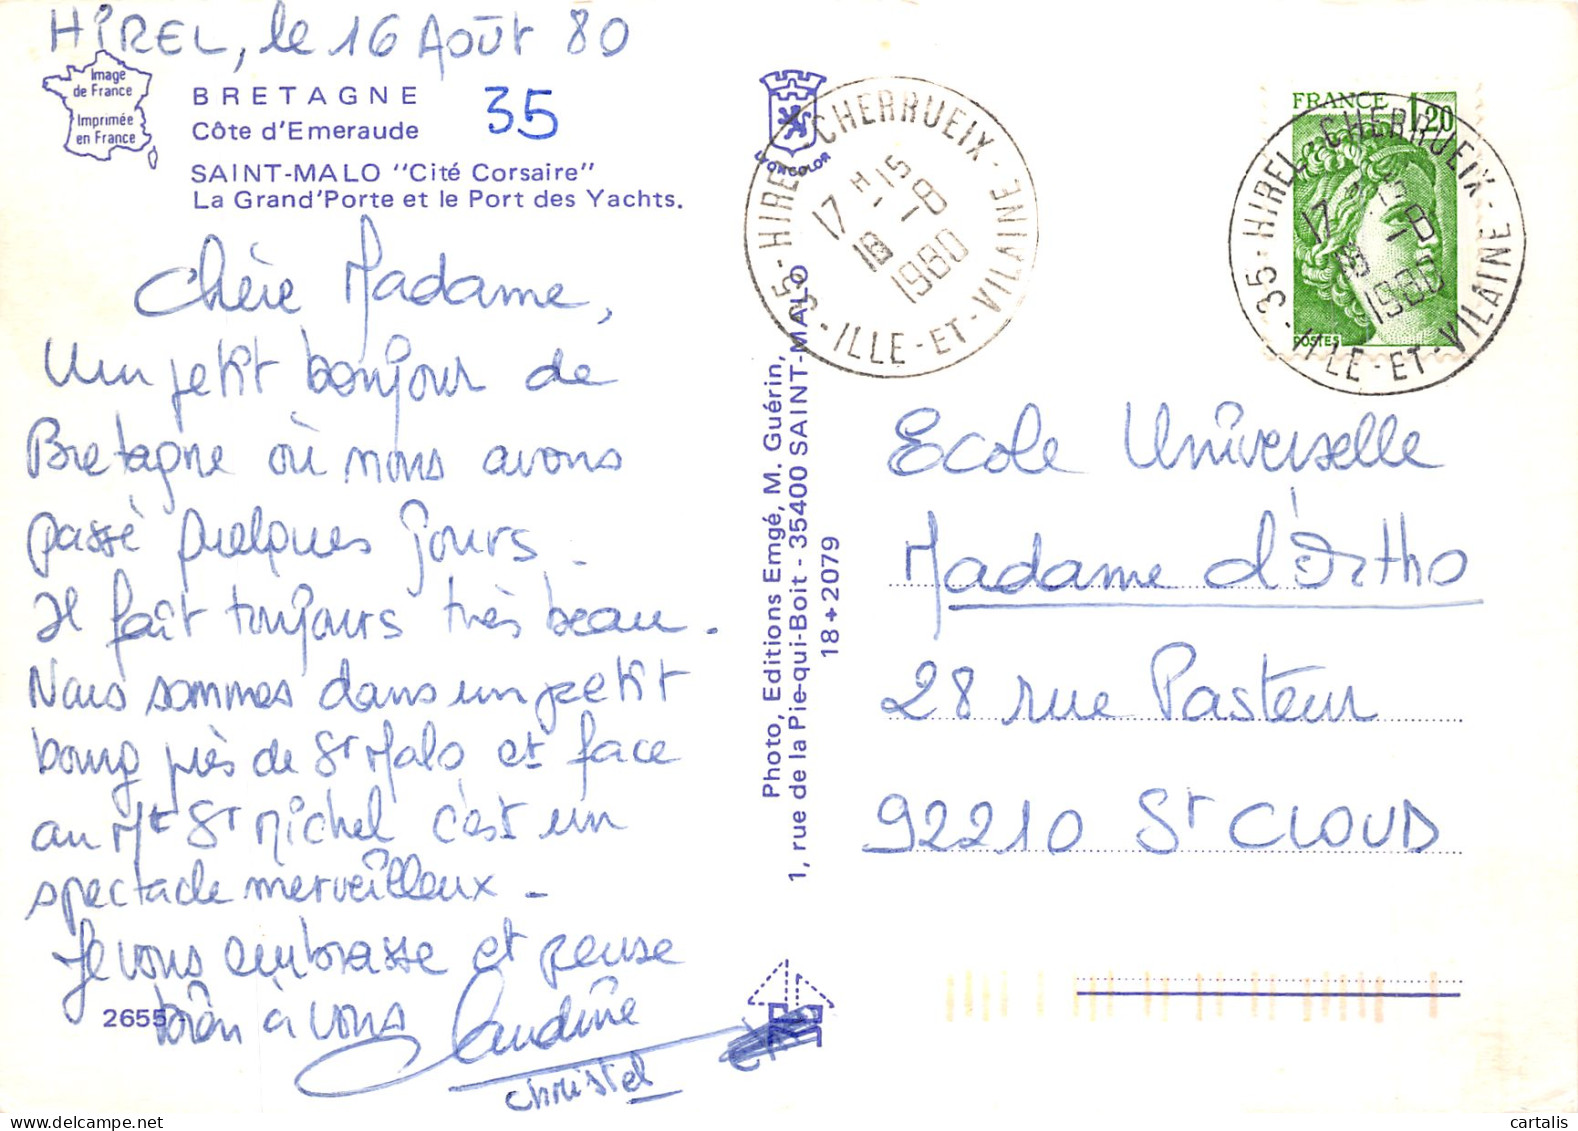 HIREL, le 16 Août 80
Image
de France
Imprimée
en France
BRETAGNE
Côte d'Emeraude
35
SAINT-MALO "Cité Corsaire"
La Grand'Porte et le Port des Yachts.
Chère Madame,
Un petit bonjour de
Bretagne où nous avons
passé quelques jours.
Il fait toujours très beau.
Nous sommes dans un petit
bourg près de St Malo et face
au Mt St Michel c'est un
spectacle merveilleux -
Je vous embrasse et pense
bien à vous
2655
Claudine
Christel
LYONCOLOR
35 - HIREL - CHERRUEIX - ILLE-ET-VILAINE
17 H - 15
18 - 8
1980
Photo, Editions Emgé, M. Guérin,
1, rue de la Pie-qui-Boit - 35400 SAINT-MALO
18+2079
FRANCE 1,20
POSTES
35 - HIREL - CHERRUEIX - ILLE-ET-VILAINE
17 H - 15
18 - 8
1980
Ecole Universelle
Madame d'Ortho
28 rue Pasteur
92210 St CLOUD
cartalis